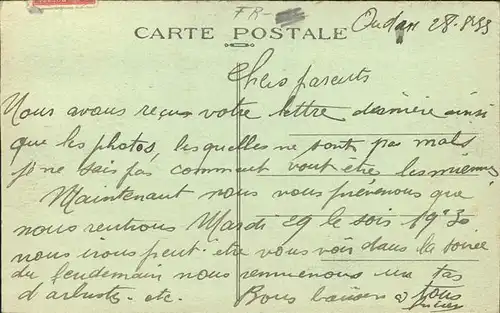 FR-
CARTE POSTALE
Oudan 28-8-33
Chers parents
Nous avons reçu votre lettre dernière ainsi
que les photos, lesquelles ne sont pas mals
je ne sais pas comment vont êtres les miennes
Maintenant nous vous prévenons que
nous rentrons Mardi 29 le soir 19ʰ30
nous irons peut-etre vous voir dans la soirée
du lendemain nous remenons un tas
d'arbustes. etc. Bons baisers à tous